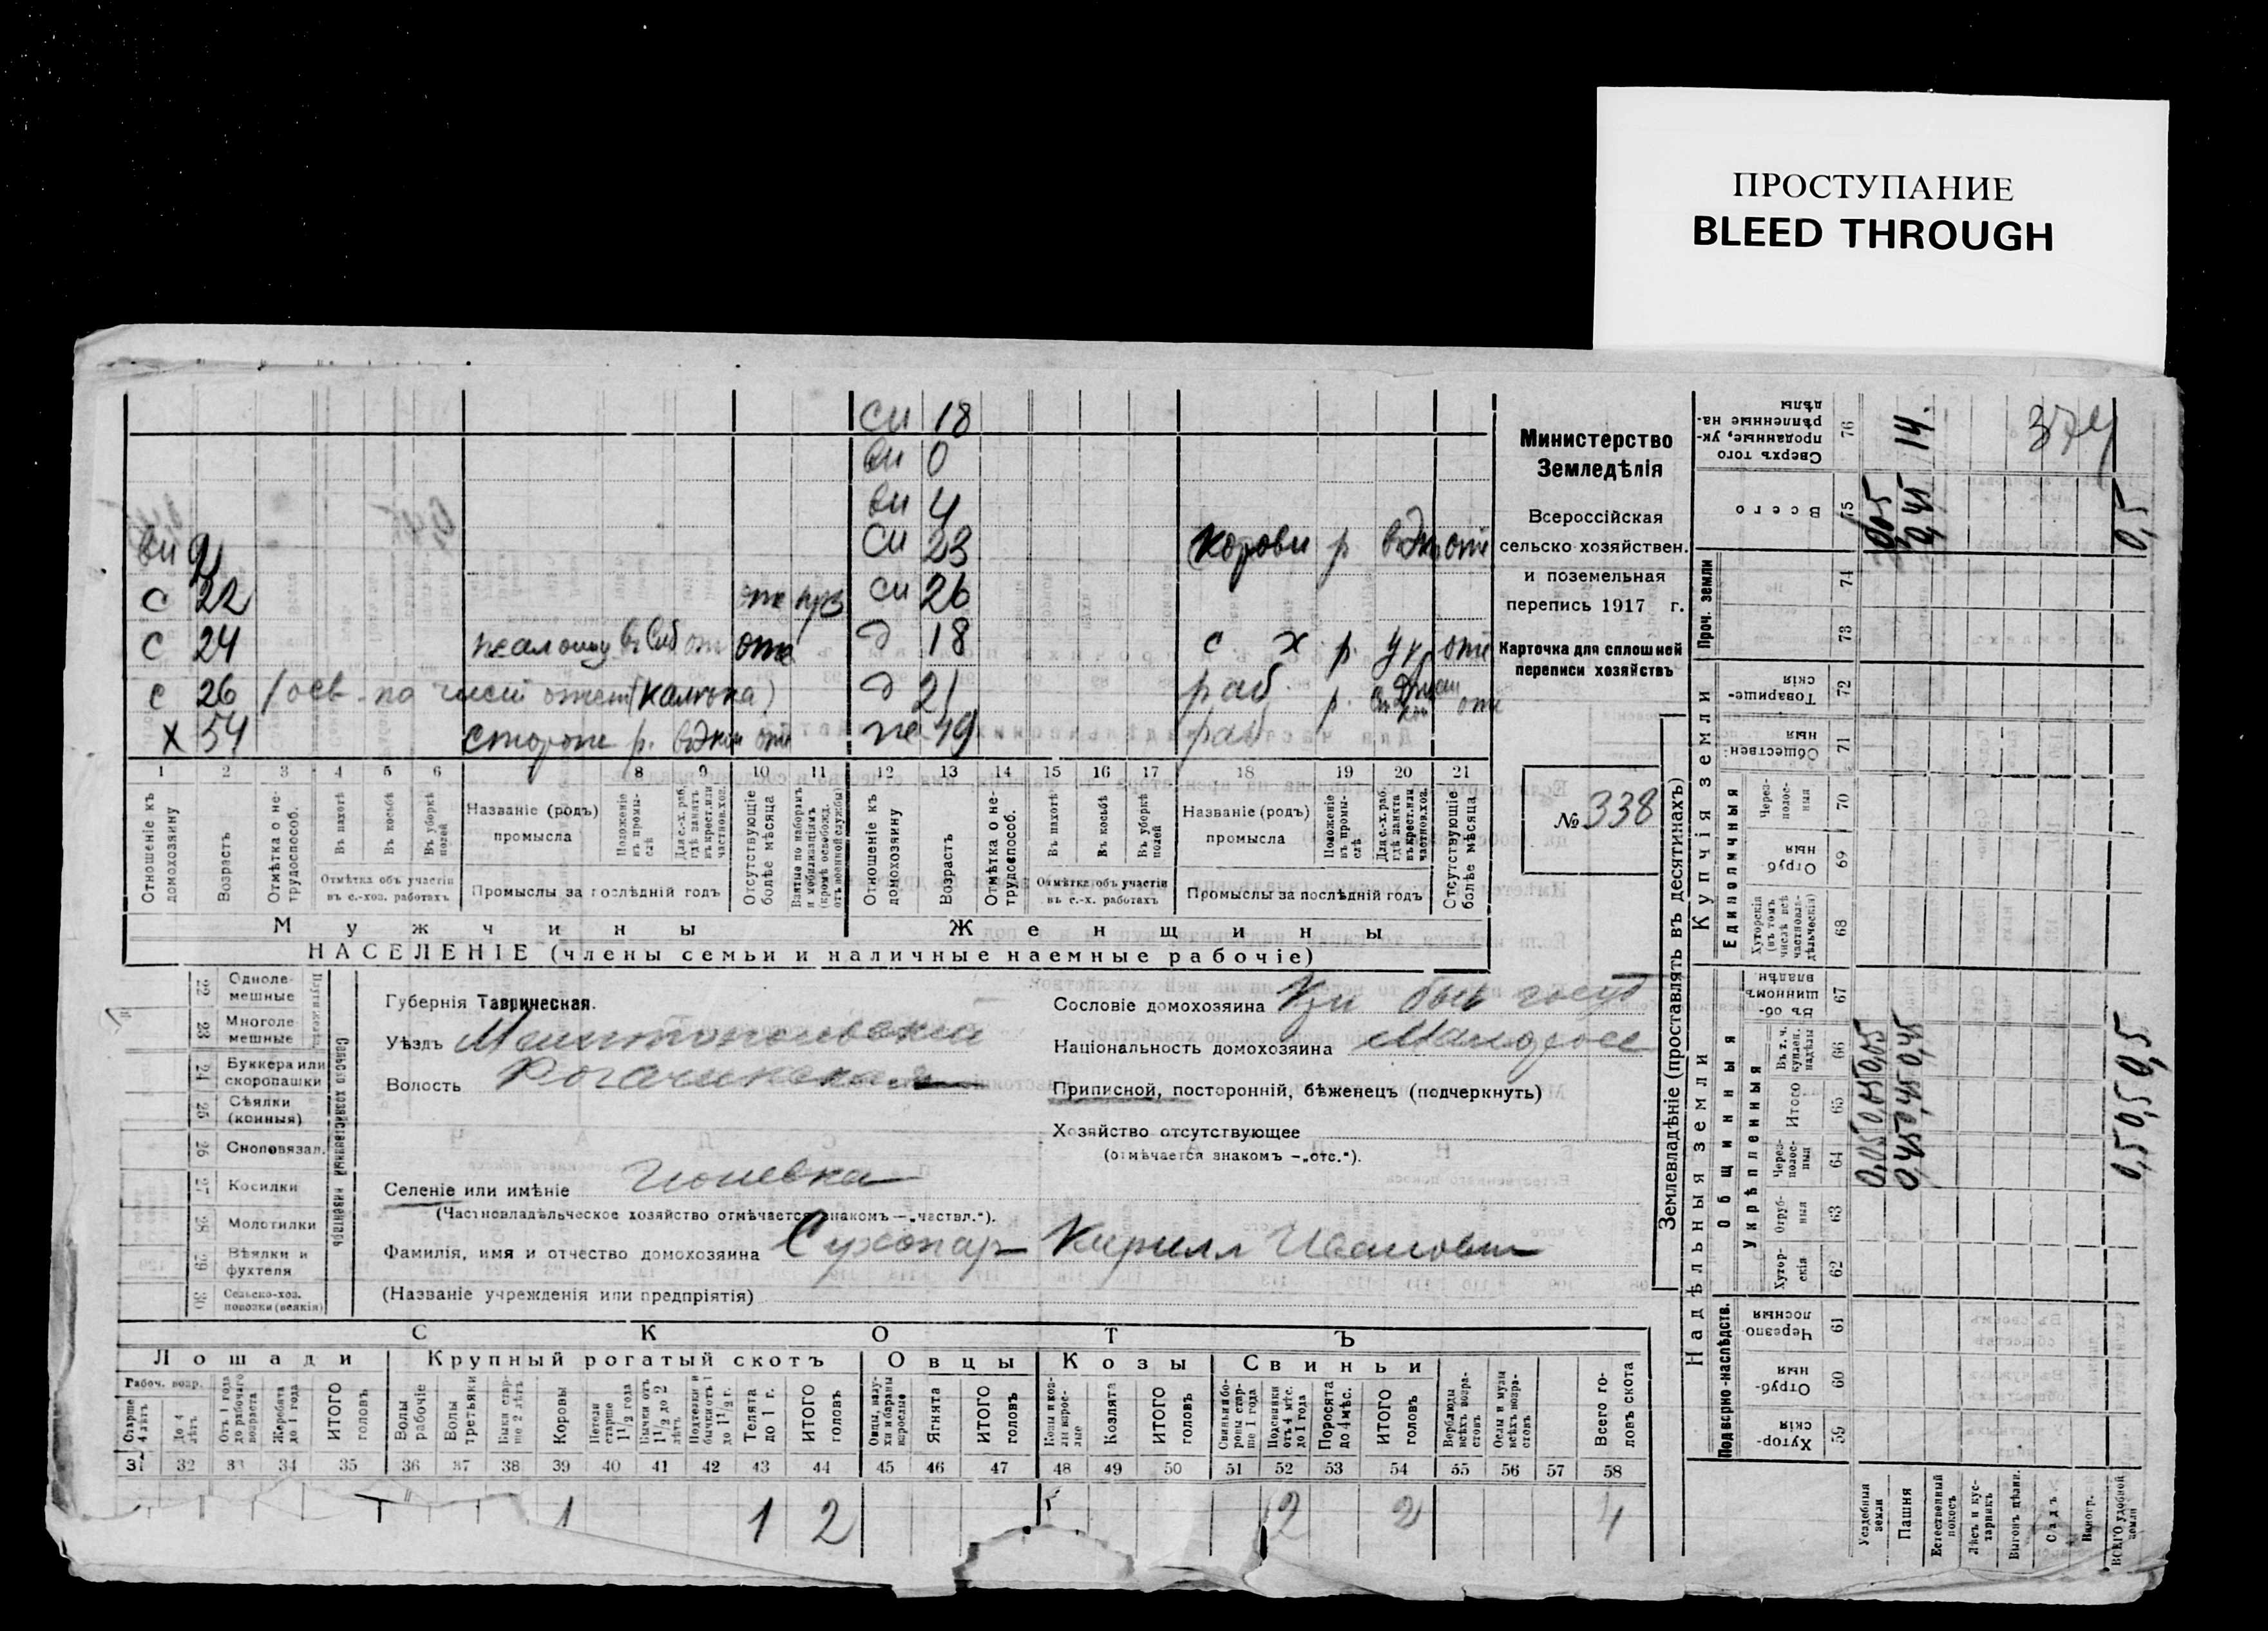 ПРОСТУПАНИЕ
BLEED THROUGH
си 18
вн 0
вн 4
вн 9 си 23 р. отс
с 22 отс си 26
с 24 отс д 18 с х р. отс
с 26 (калѣка) д 21 раб. р. отс
х 54 сторож р. отс же 49 раб
1 2 3 4 5 6 7 8 9 10 11 12 13 14 15 16 17 18 19 20 21
Отношеніе къ домохозяину
Возрастъ
Отмѣтка о нетрудоспособ.
Въ пахотѣ
Въ косьбѣ
Въ уборкѣ полей
Отмѣтка объ участіи въ с.-хоз. работахъ
Названіе (родъ) промысла
Положеніе въ промыслѣ
Для с.-х. раб. гдѣ занятъ въ крест. или частнов. хоз.
Промыслы за послѣдній годъ
Отсутствующіе болѣе мѣсяца
Взятые по наборамъ и мобилизаціямъ (кромѣ освобожд. отъ военной службы)
Отношеніе къ домохозяину
Возрастъ
Отмѣтка о нетрудоспособ.
Въ пахотѣ
Въ косьбѣ
Въ уборкѣ полей
Отмѣтка объ участіи въ с.-х. работахъ
Названіе (родъ) промысла
Положеніе въ промыслѣ
Для с.-х. раб. гдѣ занята въ крест. или частнов. хоз.
Промыслы за послѣдній годъ
Отсутствующіе болѣе мѣсяца
Мужчины Женщины
НАСЕЛЕНІЕ (члены семьи и наличные наемные рабочіе)
Министерство
Земледѣлія
Всероссійская
сельско-хозяйствен.
и поземельная
перепись 1917 г.
Карточка для сплошней
переписи хозяйствъ
№ 338
22 Одноле-мешные
23 Многоле-мешные
24 Буккера или скоропашки
25 Сѣялки (конныя)
26 Сноповязал.
27 Косилки
28 Молотилки
29 Вѣялки и фухтеля
30 Сельско-хоз. повозки (всякія)
Сельско хозяйственный инвентарь
Губернія Таврическая.
Уѣздъ Мелитопольскій
Волость Рогачикская
Селеніе или имѣніе
(Частновладѣльческое хозяйство отмѣчается знакомъ —„частвл.“).
Фамилія, имя и отчество домохозяина Сухопар Кирилл Иванович
(Названіе учрежденія или предпріятія)
Сословіе домохозяина
Національность домохозяина Малоросс
Приписной, посторонній, бѣженецъ (подчеркнуть)
Хозяйство отсутствующее
(отмѣчается знакомъ —„отс.“).
СКОТЪ
Лошади Крупный рогатый скотъ Овцы Козы Свиньи
Рабоч. возр.
Старше 4 лѣтъ
До 4 лѣтъ
Отъ 1 года до рабочаго возраста
Жеребята до 1 года
ИТОГО головъ
Волы рабочіе
Волы третьяки
Быки старше 2 лѣтъ
Коровы
Нетели старше 1½ года
Бычки отъ 1½ до 2 лѣтъ
Подтелки и бычки отъ 1 до 1½ г.
Телята до 1 г.
ИТОГО головъ
Овцы, валухи и бараны взрослые
Ягнята
ИТОГО головъ
Козы и козлы взрослые
Козлята
ИТОГО головъ
Свиньи и боровы старше 1 года
Подсвинки отъ 4 мѣс. до 1 года
Поросята до 4 мѣс.
ИТОГО головъ
Верблюды всѣхъ возрастовъ
Ослы и мулы всѣхъ возрастовъ
Всего головъ скота
31 32 33 34 35 36 37 38 39 40 41 42 43 44 45 46 47 48 49 50 51 52 53 54 55 56 57 58
1 1 2 2 2 4
Землевладѣніе (проставлять въ десятинахъ)
Надѣльныя земли Купчія земли Проч. земли
Подворно-наслѣдств.
Общинныя
Укрѣпленныя
Единоличныя
Хуторскія 59
Отрубныя 60
Черезполосныя 61
Хуторскія 62
Отрубныя 63
Черезполосныя 64
Итого 65
Въ т. ч. куплен. надѣлы 66
Въ общинномъ владѣн. 67
Хуторскія (въ томъ числѣ всѣ частновладѣльческія) 68
Отрубныя 69
Черезполосныя 70
Общественныя 71
Товарищескія 72
73
74
Всего 75
Сверхъ того проданные, укрѣпленные надѣлы 76
Усадебныя земли 0,05 0,05 0,05 0,05
Пашня 0,45 0,45 0,45 0,45 14.
Естественный покосъ
Лѣсъ и кустарникъ
Выгонъ цѣлин.
Садъ
Виногр.
ВСЕГО удобной земли 0,5 0,5 0,5 0,5
374